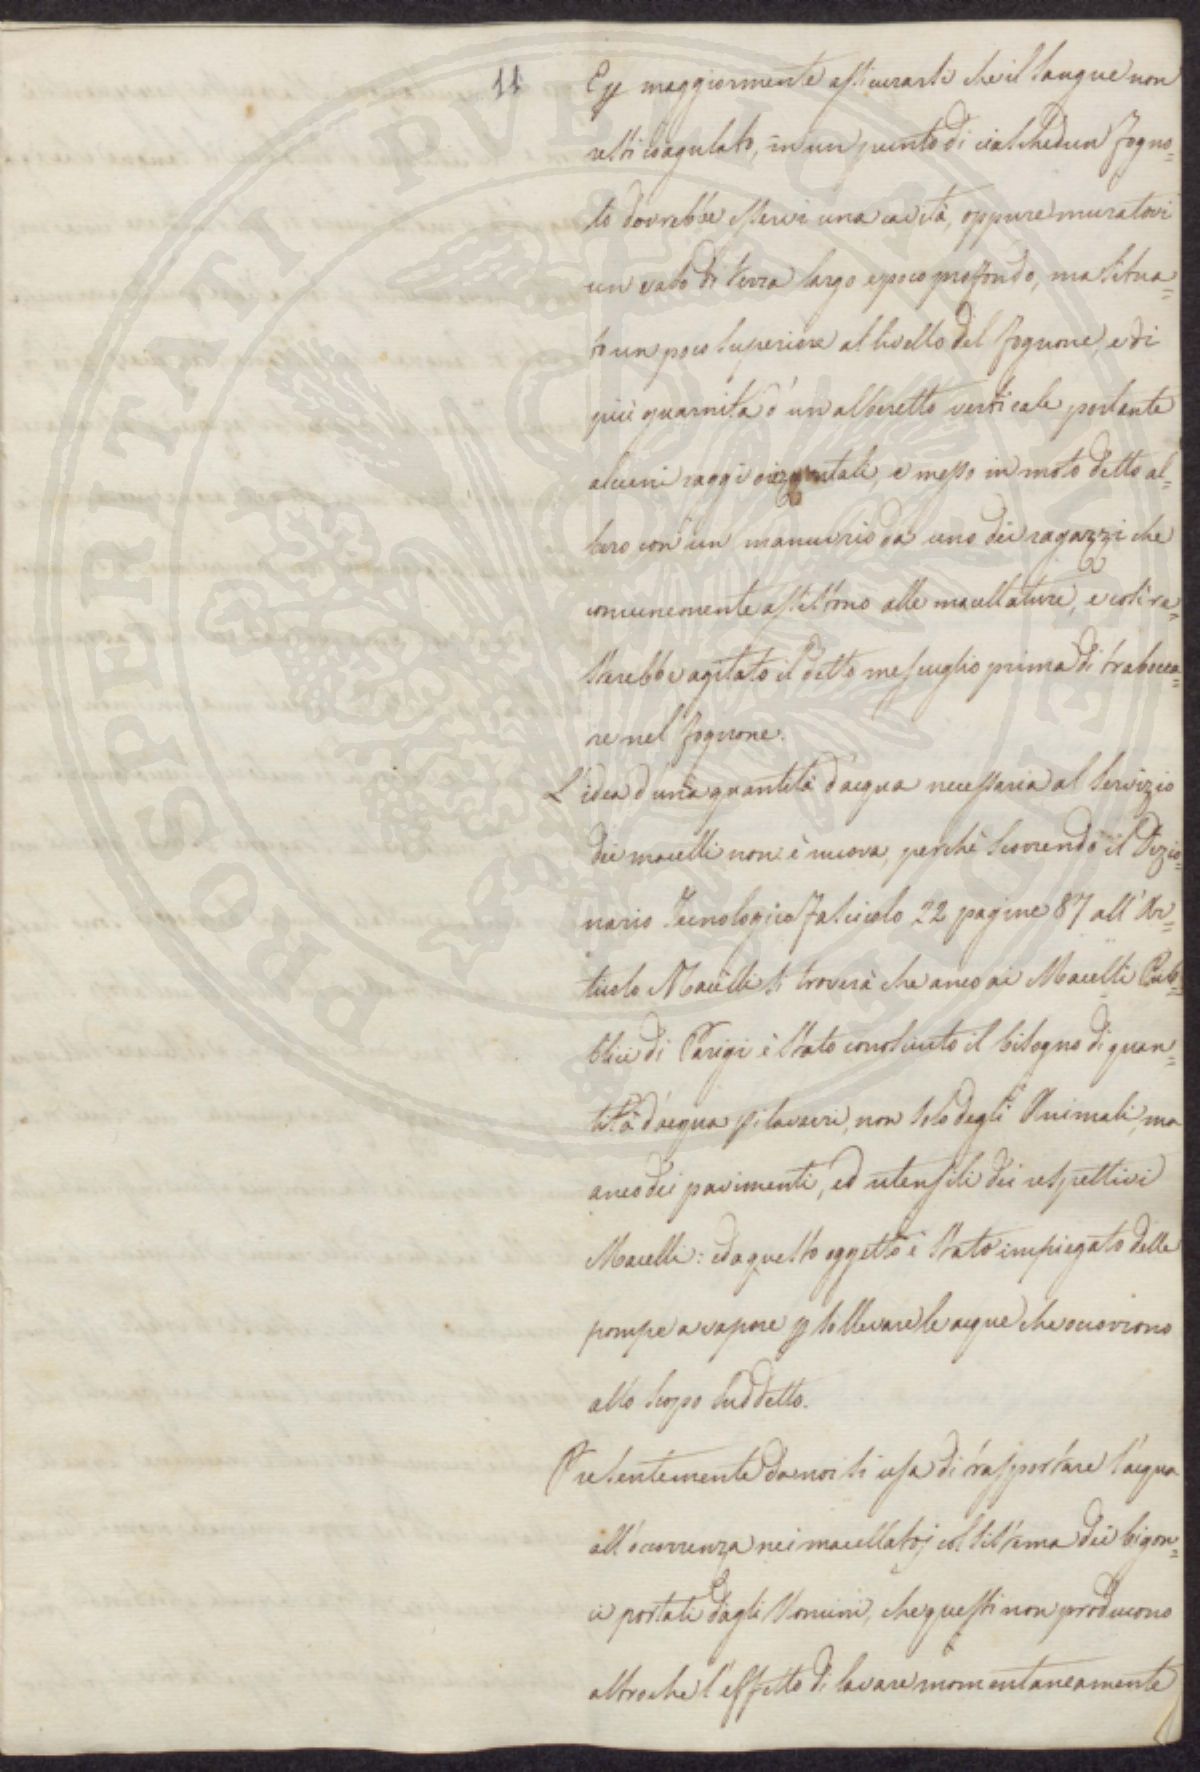 11
E p maggiormente assicurarsi che il sangue non
resti coagulato, in un punto di ciascheduna fogno=
lo dovrebbe esservi una cavità, oppure muratovi
un vaso di terra largo e poco profondo, ma situa=
to un poco superiore al livello del fognone, e di
più guarnita d'un alberetto verticale portante
alcuni raggi orizzontali, e messo in moto detto al=
bero con un manubrio da uno dei ragazzi che
comunemente assistono alle macellature, e così re=
sterebbe agitato il detto mescuglio prima di trabocca=
re nel fognone.
L'idea d'una quantità d'acqua necessaria al servizio
dei macelli non è nuova, perchè scorrendo il Dizio=
nario Tecnologico Fascicolo 22 pagine 87 all'Ar=
ticolo Macelli si troverà che anco ai Macelli Pub=
blici di Parigi è stato conosciuto il bisogno di quan=
tità d'acqua p i lavacri, non solo degli Animali, ma
anco dei pavimenti, ed utensili dei respettivi
Macelli: ed a questo oggetto è stato impiegato delle
pompe a vapore p sollevare le acque che occorrono
allo scopo suddetto.
Presentemente da noi si usa di trasportare l'acqua
all'occorrenza nei macellatoj col sistema dei bigon=
ci portati dagli Uomini, che questi non producono
altro che l'effetto di lavare momentaneamente
PROSPERITATI PVBLICAE